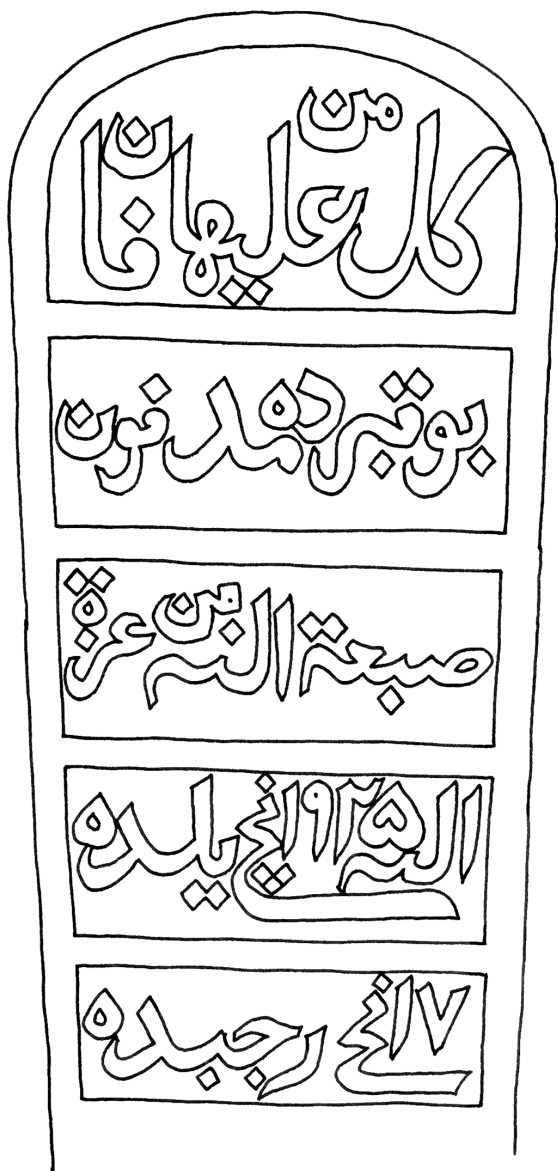 كل من عليها فان
بو قبرده مدفون
صبعة الله بن عزة
الله ١٩٢٥ نچى يلده
١٧ نحى رجبده